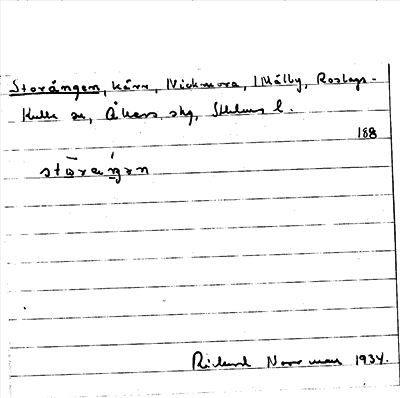 Storängen, kärr, Vickmora, Mälby, Roslags-
Kulla sn, Åkers skg, Sthlms l.
188
stōrǽŋən
Rickard Norrman 1934.